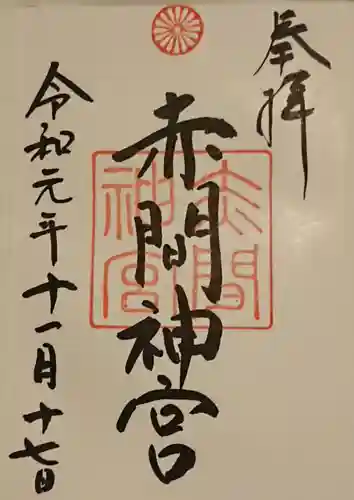 奉拝
赤間神宮
赤間神宮
令和元年十一月十七日